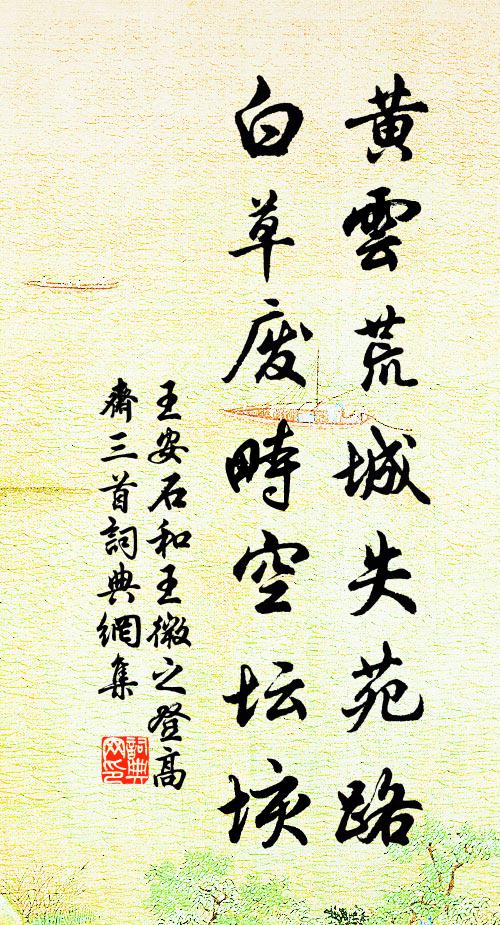 黄雲荒城失苑路
白草废畤空坛垓
王安石和王微之登高
齋三首詞典網集
詞典网印